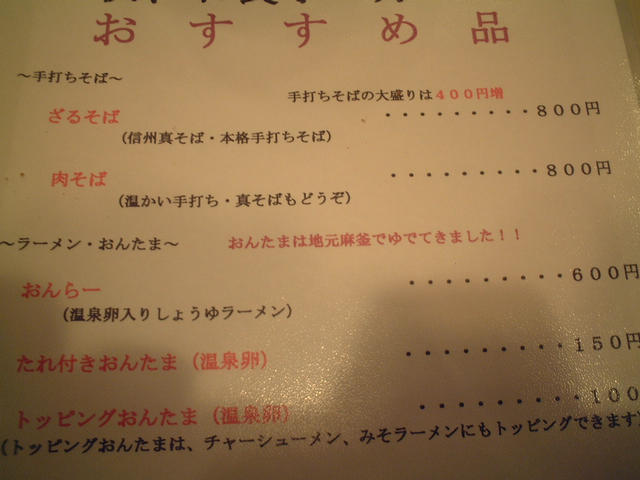 おすすめ品
～手打ちそば～
手打ちそばの大盛りは４００円増
ざるそば ・・・・・・・・・８００円
（信州真そば・本格手打ちそば）
肉そば ・・・・・・・・・８００円
（温かい手打ち・真そばもどうぞ）
～ラーメン・おんたま～ おんたまは地元麻釜でゆでてきました！！
おんらー ・・・・・・・・・６００円
（温泉卵入りしょうゆラーメン）
たれ付きおんたま（温泉卵） ・・・・・・・・・１５０円
トッピングおんたま（温泉卵） ・・・・・・・・・１００
（トッピングおんたまは、チャーシューメン、みそラーメンにもトッピングできます